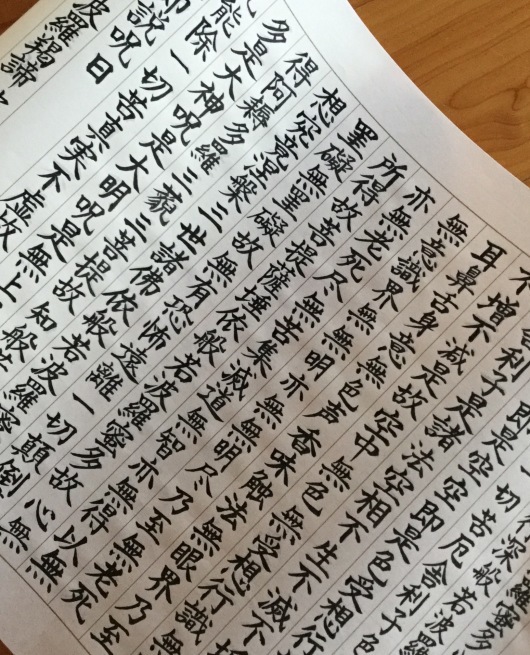 羅蜜多
深般若波羅
切苦厄舎利子色
即是空空即是色受想行
舎利子是諸法空相不生不滅不
不増不減是故空中無色無受想行識無
耳鼻舌身意無色声香味触法無眼界乃至
無意識界無無明亦無無明尽乃至無老死
亦無老死尽無苦集滅道無智亦無得以無
所得故菩提薩埵依般若波羅蜜多故心無
罣礙無罣礙故無有恐怖遠離一切顛倒
想究竟涅槃三世諸佛依般若波羅蜜
得阿耨多羅三藐三菩提故知般若
多是大神呪是大明呪是無上
能除一切苦真実不虚故
即説呪曰
波羅羯諦